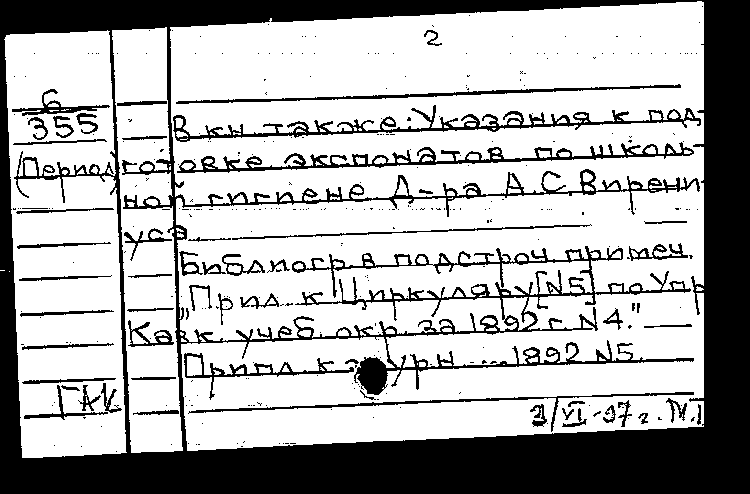 2
6
355
(Период)
В кн также: Указания к под-
готовке экспонатов по школь-
ной гигиене Д-ра А.С.Вирени-
уса.
Библиогр. в подстроч. примеч.
"Прил. к Циркуляру [N5] по Упр
Кавк. учеб. окр. за 1892 г. N4."
Прил. к журн .... 1892 N5.
ГАК
3/VI-97г.